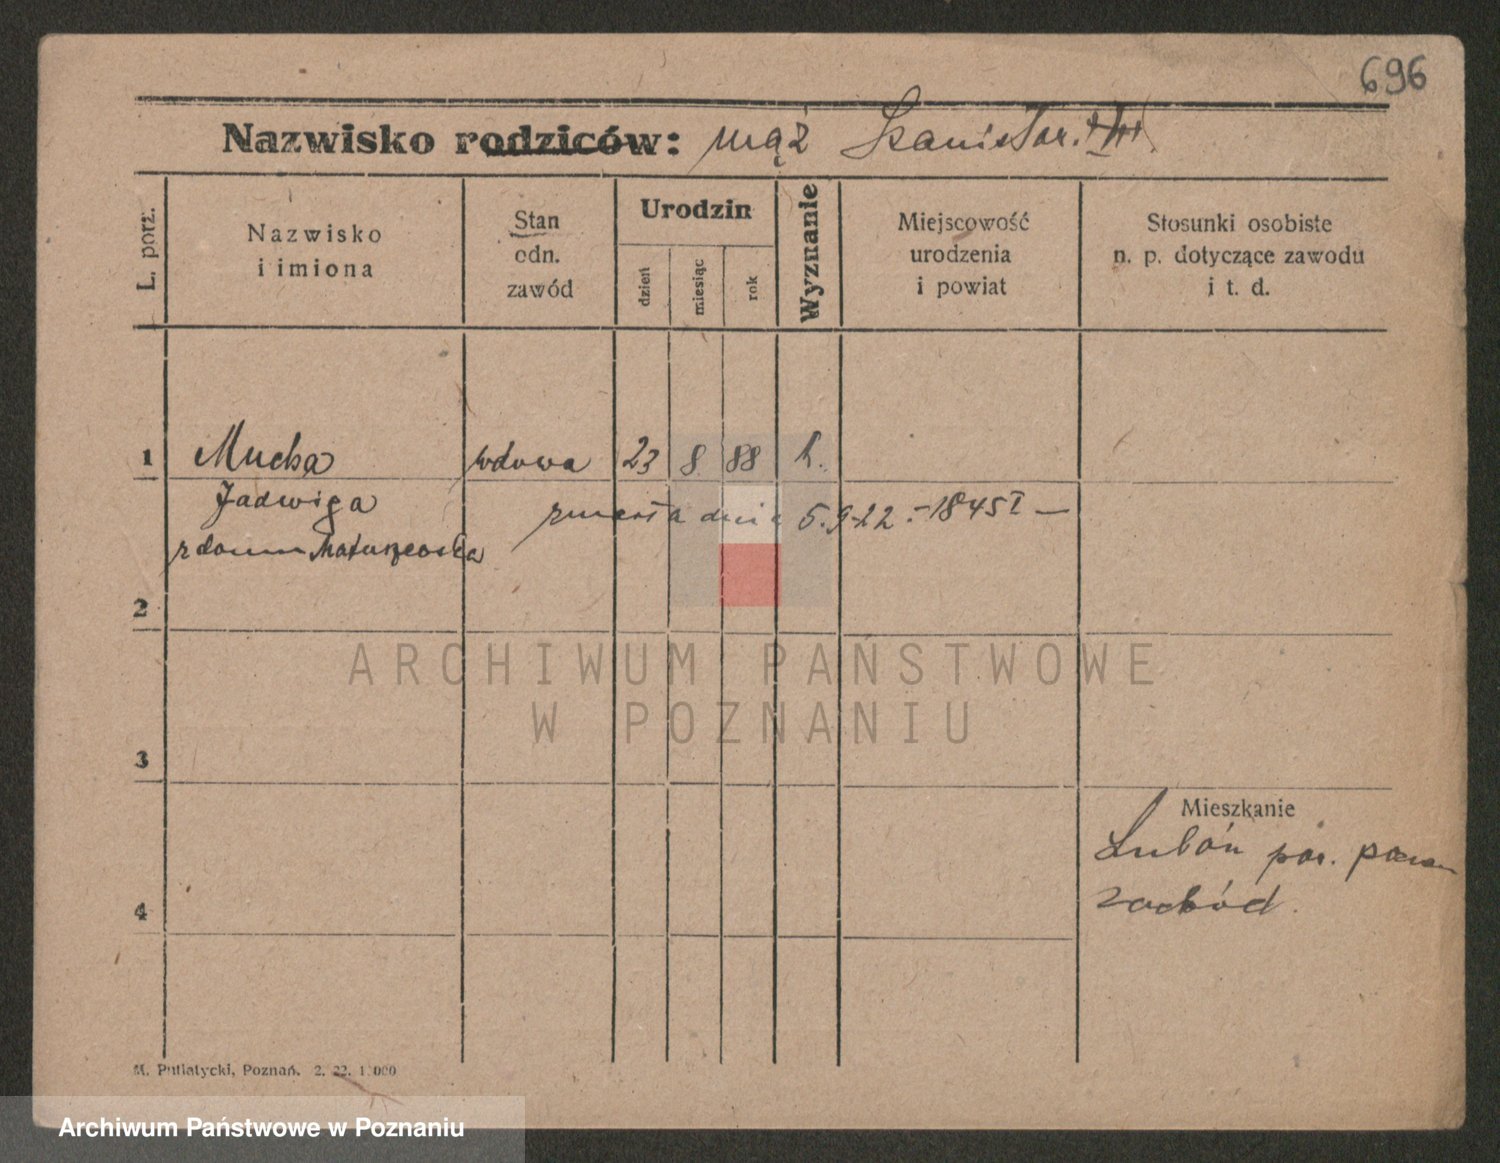 696
Nazwisko rodziców: mąż Stanisław
L. porz.
Nazwisko
i imiona
Stan
odn.
zawód
Urodzin
dzień
miesiąc
rok
Wyznanie
Miejscowość
urodzenia
i powiat
Stosunki osobiste
n. p. dotyczące zawodu
i t. d.
1 Mucha wdowa 23 8 88 k.
Jadwiga
zmarła dnia 5.9.22 - 1845 I —
z domu Matuszewska
2
ARCHIWUM PAŃSTWOWE
W POZNANIU
3
Mieszkanie
Luboń pow. Poznań
zachód.
4
M. Putiatycki, Poznań. 2. 22. 1.000
Archiwum Państwowe w Poznaniu